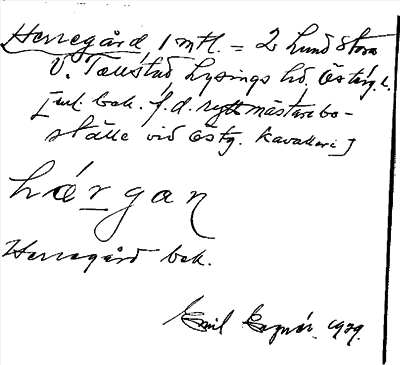 Herregård, 1 mtl. = 2 hund stora
V. Tollstad, Lysings hd, Österg. l.
[enl. bek. f.d. ryttmästarebo-
ställe vid Östg. Kavalleri]
hærgaɳ
Herregård bek.
Emil 1929.